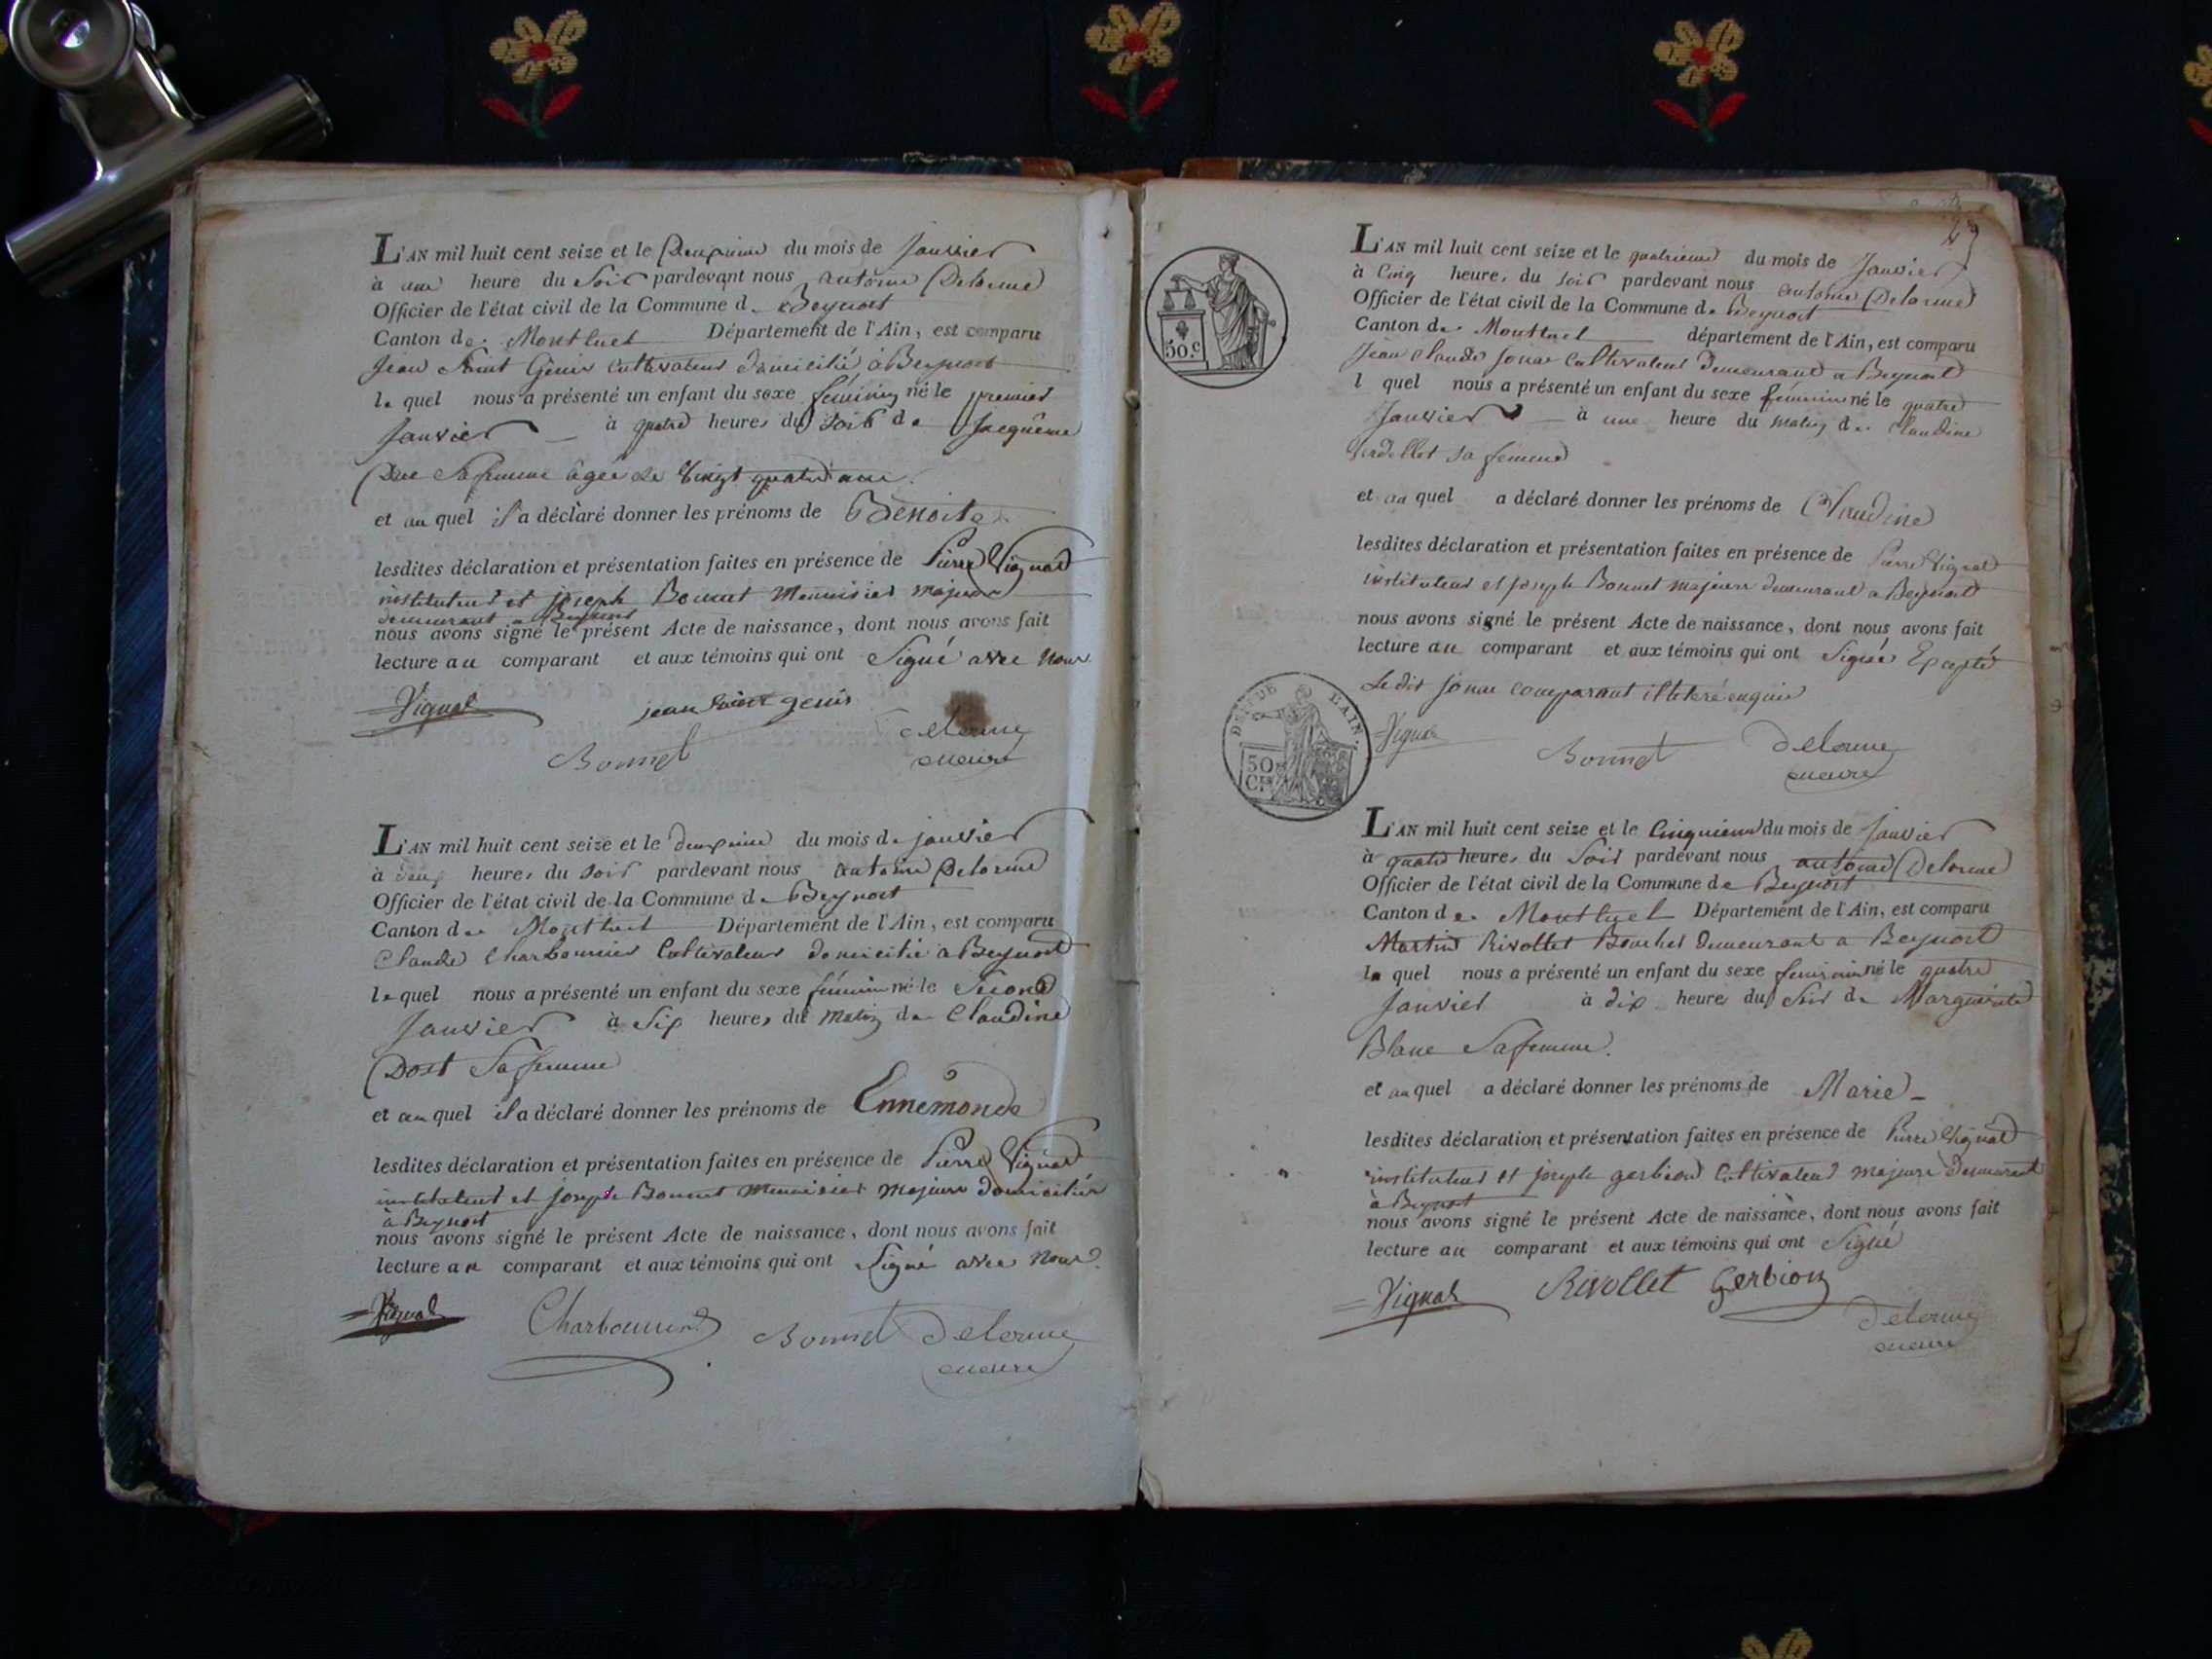 L'AN mil huit cent seize et le Deuxieme du mois de Janvier
à une heure du Soir pardevant nous antoine Delorme
Officier de l'état civil de la Commune de Beynost
Canton de Montluel Département de l'Ain, est comparu
Jean Saint Genis Cultivateur domicilié à Beynost
le quel nous a présenté un enfant du sexe féminin né le premier
Janvier à quatre heures du soir de Jacquême
Duc Sa femme agée de Vingt quatre ans.
et au quel il a déclaré donner les prénoms de Benoite
lesdites déclaration et présentation faites en présence de Pierre Vignat
instituteur et joseph Bonnet Menuisier majeurs
demeurant a Beynost
nous avons signé le présent Acte de naissance, dont nous avons fait
lecture au comparant et aux témoins qui ont Signé avec Nous
Vignat jean Saint genis
Bonnet delorme
maire
L'AN mil huit cent seize et le deuxieme du mois de janvier
à deux heures du soir pardevant nous antoine Delorme
Officier de l'état civil de la Commune de Beynost
Canton de Montluel Département de l'Ain, est comparu
Claude Charbonnier Cultivateur domicilié a Beynost
le quel nous a présenté un enfant du sexe féminin né le Second
Janvier à Six heures du matin de Claudine
Dost Sa femme
et au quel il a déclaré donner les prénoms de Ennemonde
lesdites déclaration et présentation faites en présence de Pierre Vignat
instituteur et joseph Bonnet Menuisier majeurs domiciliés
à Beynost
nous avons signé le présent Acte de naissance, dont nous avons fait
lecture au comparant et aux témoins qui ont Signé avec Nous
Vignat Charbonnier Bonnet Delorme
maire
50.c
L'AN mil huit cent seize et le quatrieme du mois de Janvier
à Cinq heures du soir pardevant nous antoine Delorme
Officier de l'état civil de la Commune de Beynost
Canton de Montluel département de l'Ain, est comparu
Jean Claude Cultivateur demeurant a Beynost
l quel nous a présenté un enfant du sexe féminin né le quatre
Janvier à une heure du matin de Claudine
sa femme
et au quel a déclaré donner les prénoms de Claudine
lesdites déclaration et présentation faites en présence de Pierre Vignat
instituteur et joseph Bonnet majeurs demeurant a Beynost
nous avons signé le présent Acte de naissance, dont nous avons fait
lecture au comparant et aux témoins qui ont Signé Excepté
Le dit comparant illeteré enquis
50 CES
Vignat Bonnet delorme
maire
L'AN mil huit cent seize et le Cinquieme du mois de Janvier
à quatre heures du Soir pardevant nous antoine Delorme
Officier de l'état civil de la Commune de Beynost
Canton de Montluel Département de l'Ain, est comparu
Martin Rivollet Boucher demeurant a Beynost
le quel nous a présenté un enfant du sexe feminin né le quatre
Janvier à dix heures du Soir de Marguerite
Blanc Sa femme.
et au quel a déclaré donner les prénoms de Marie
lesdites déclaration et présentation faites en présence de Pierre Vignat
instituteur et joseph gerbion Cultivateur majeurs demeurant
à Beynost
nous avons signé le présent Acte de naissance, dont nous avons fait
lecture au comparant et aux témoins qui ont Signé
Vignat Rivollet Gerbion
delorme
maire